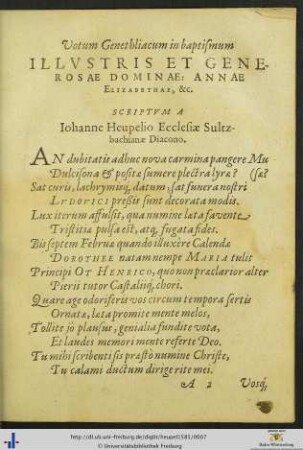 Votum Genethliacum in baptismum
ILLVSTRIS ET GENE-
ROSAE DOMINAE: ANNAE
ELIZABETHAE, &c.
SCRIPTVM A
Iohanne Heupelio Ecclesiæ Sultz-
bachianæ Diacono.
AN dubitatis adhuc nova carmina pangere Mu
Dulcisona & positæ sumere plectra lyræ? (sæ?
Sat curis, lachrymisq́; datum; sat funera nostri
LVDOVICI pressis sunt decorata modis.
Lux iterum affulsit, qua numine læta favente
Tristitia pulsa est, atq́; fugata fides.
Bis septem Februa quando illuxere Calendæ
DOROTHEE natam nempe MARIA tulit
Principi OT HENRICO, quo non præclarior alter
Pierii tutor Castaliiq́; chori.
Quare age odoriferis vos circum tempora sertis
Ornatæ, læta promite mente melos,
Tollite jò plausus, genialia fundite vota,
Et laudes memori mente referte Deo.
Tu mihi scribenti sis præstò numine Christe,
Tu calami ductum dirige rite mei.
A 2 Vosq́;
http://dl.ub.uni-freiburg.de/diglit/heupel1581/0007
© Universitätsbibliothek Freiburg
Baden-Württemberg